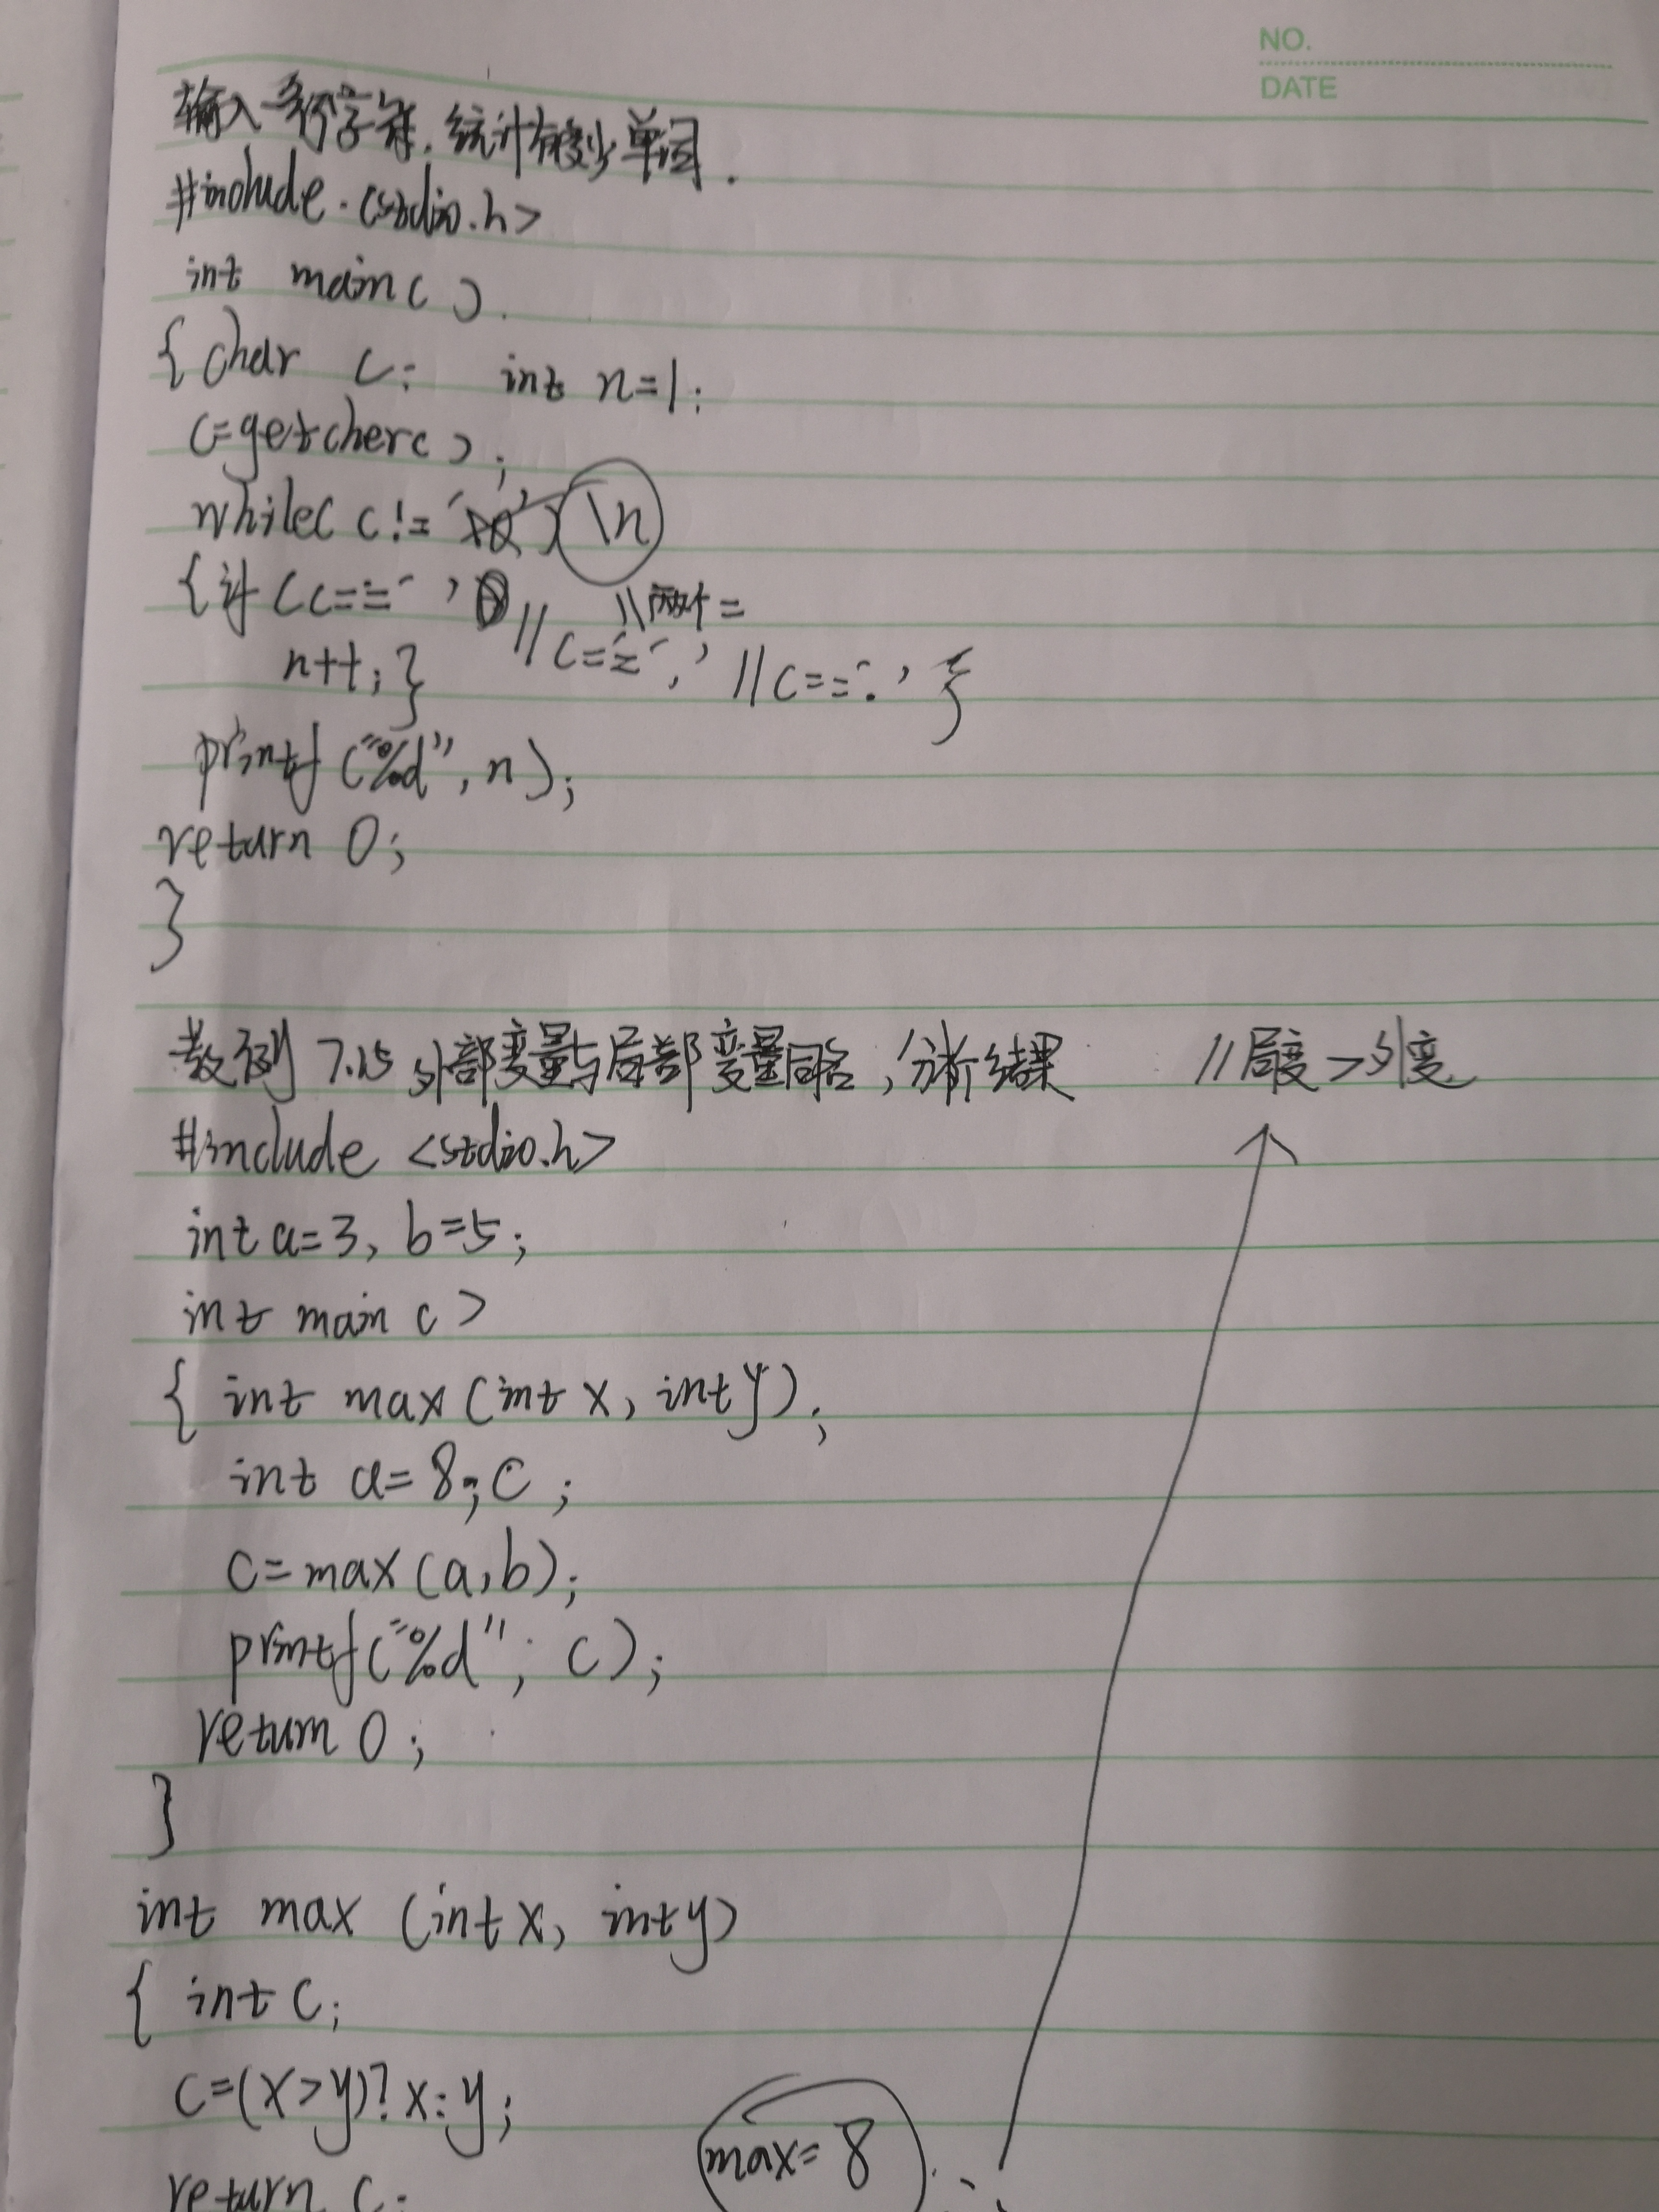 NO.
DATE
输入一行字符,统计有多少单词.
#include <stdio.h>
int main()
{ char c; int n=1;
c=getchar();
while( c!=' ') \n
{ if (c==' ' //两个=
n++; } ||c==',' ||c=='.' }
printf("%d", n);
return 0;
}
教例7.15 外部变量与局部变量同名,分析结果 //局变>外变
#include <stdio.h>
int a=3, b=5;
int main()
{ int max(int x, int y);
int a=8; c;
c=max(a,b);
printf("%d"; c);
return 0;
}
int max (int x, int y)
{ int c;
c=(x>y)?x:y;
max=8
return c;